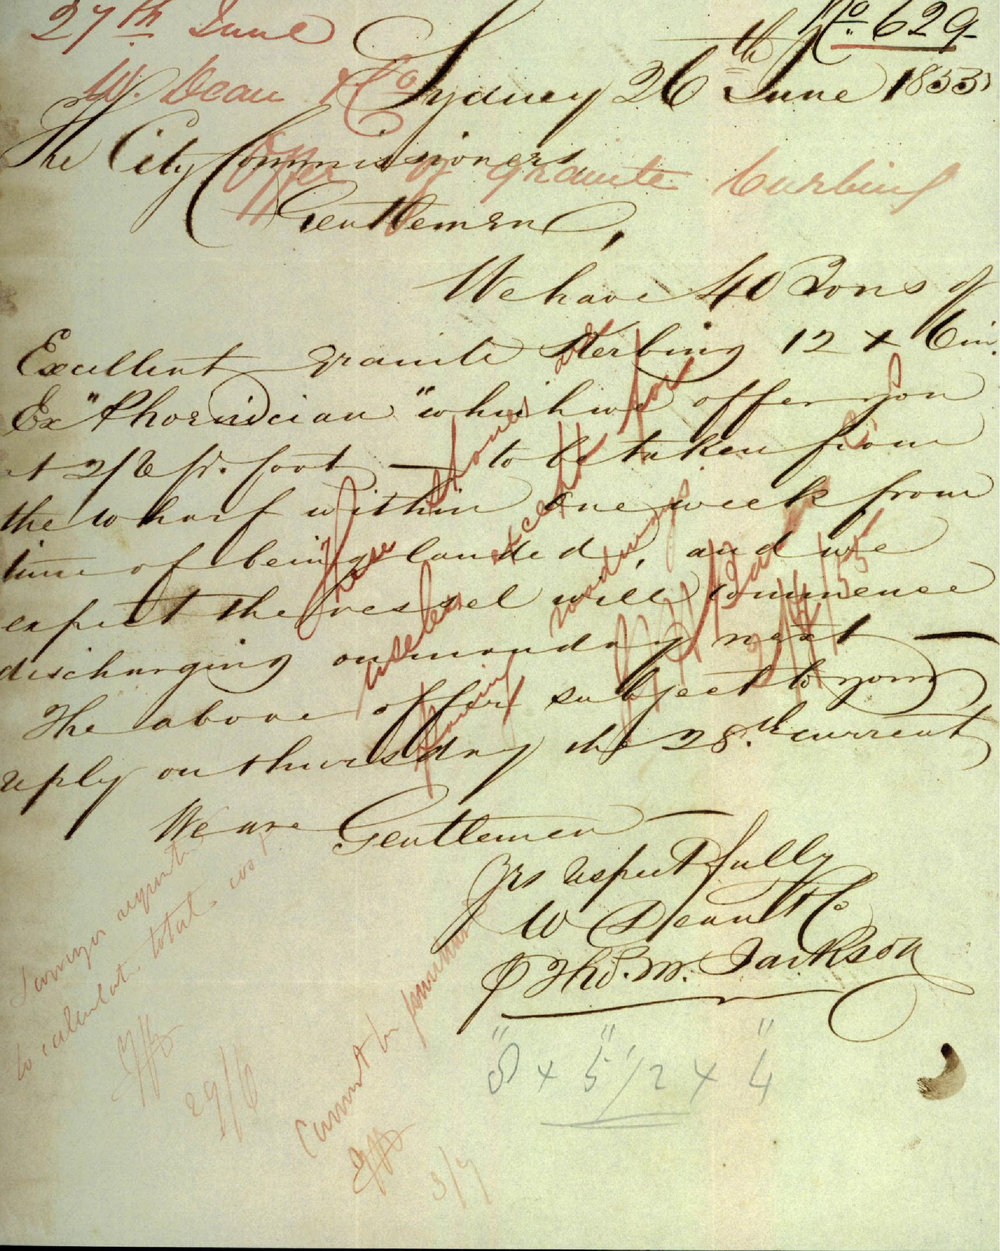 27th June
No. 629
W. Dean & Co
Sydney 26th June 1855
Offer of granite Curbing
The City Commissioners
Gentlemen,
We have 40 Tons of
Excellent granite Kerbing 12 x 6 in.
Ex "Phoenician" which we offer you
at 2/6 pr. foot — to be taken from
the wharf within one week from
time of being landed, and we
expect the vessel will commence
discharging on monday next —
The above offer subject to your
reply on thursday the 28th current
We are Gentlemen —
Yrs respectfully
W Dean & Co
P Thos. M. Jackson
These stones are
useless except for
paving roadways
2/7/55
Surveyor requested
to calculate total cost
29/6
Cannot be
3/7
8" x 5"1/2 x 4"